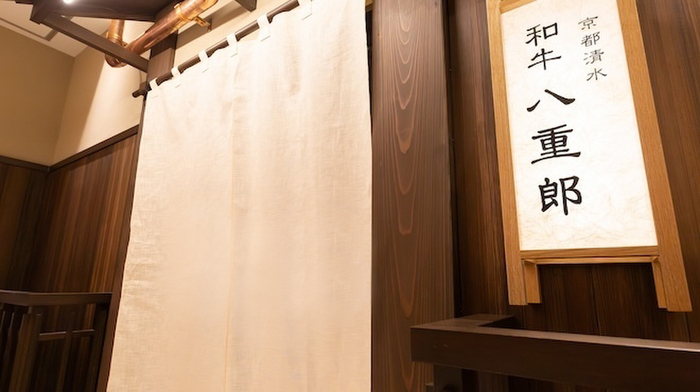 京都清水
和牛
八重郎